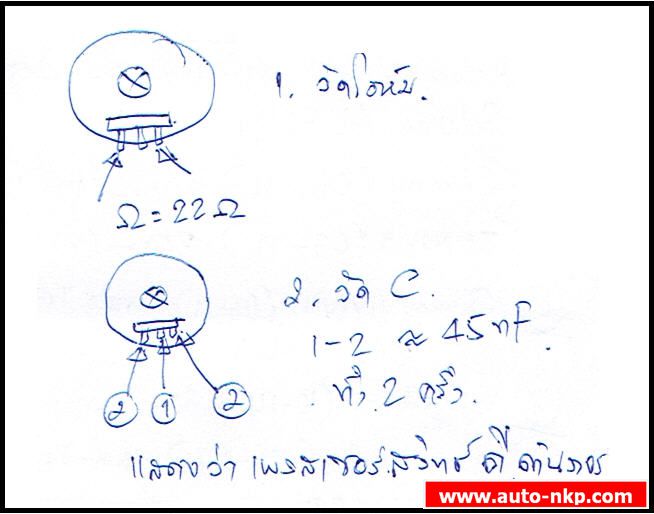 1. วัดโอห์ม.
Ω = 22 Ω
2. วัด C.
1-2 ≈ 45 nF.
ทั้ง 2 ครั้ง.
2 1 2
แสดงว่า เพรสเชอร์.สวิทช์ ดี
www.auto-nkp.com